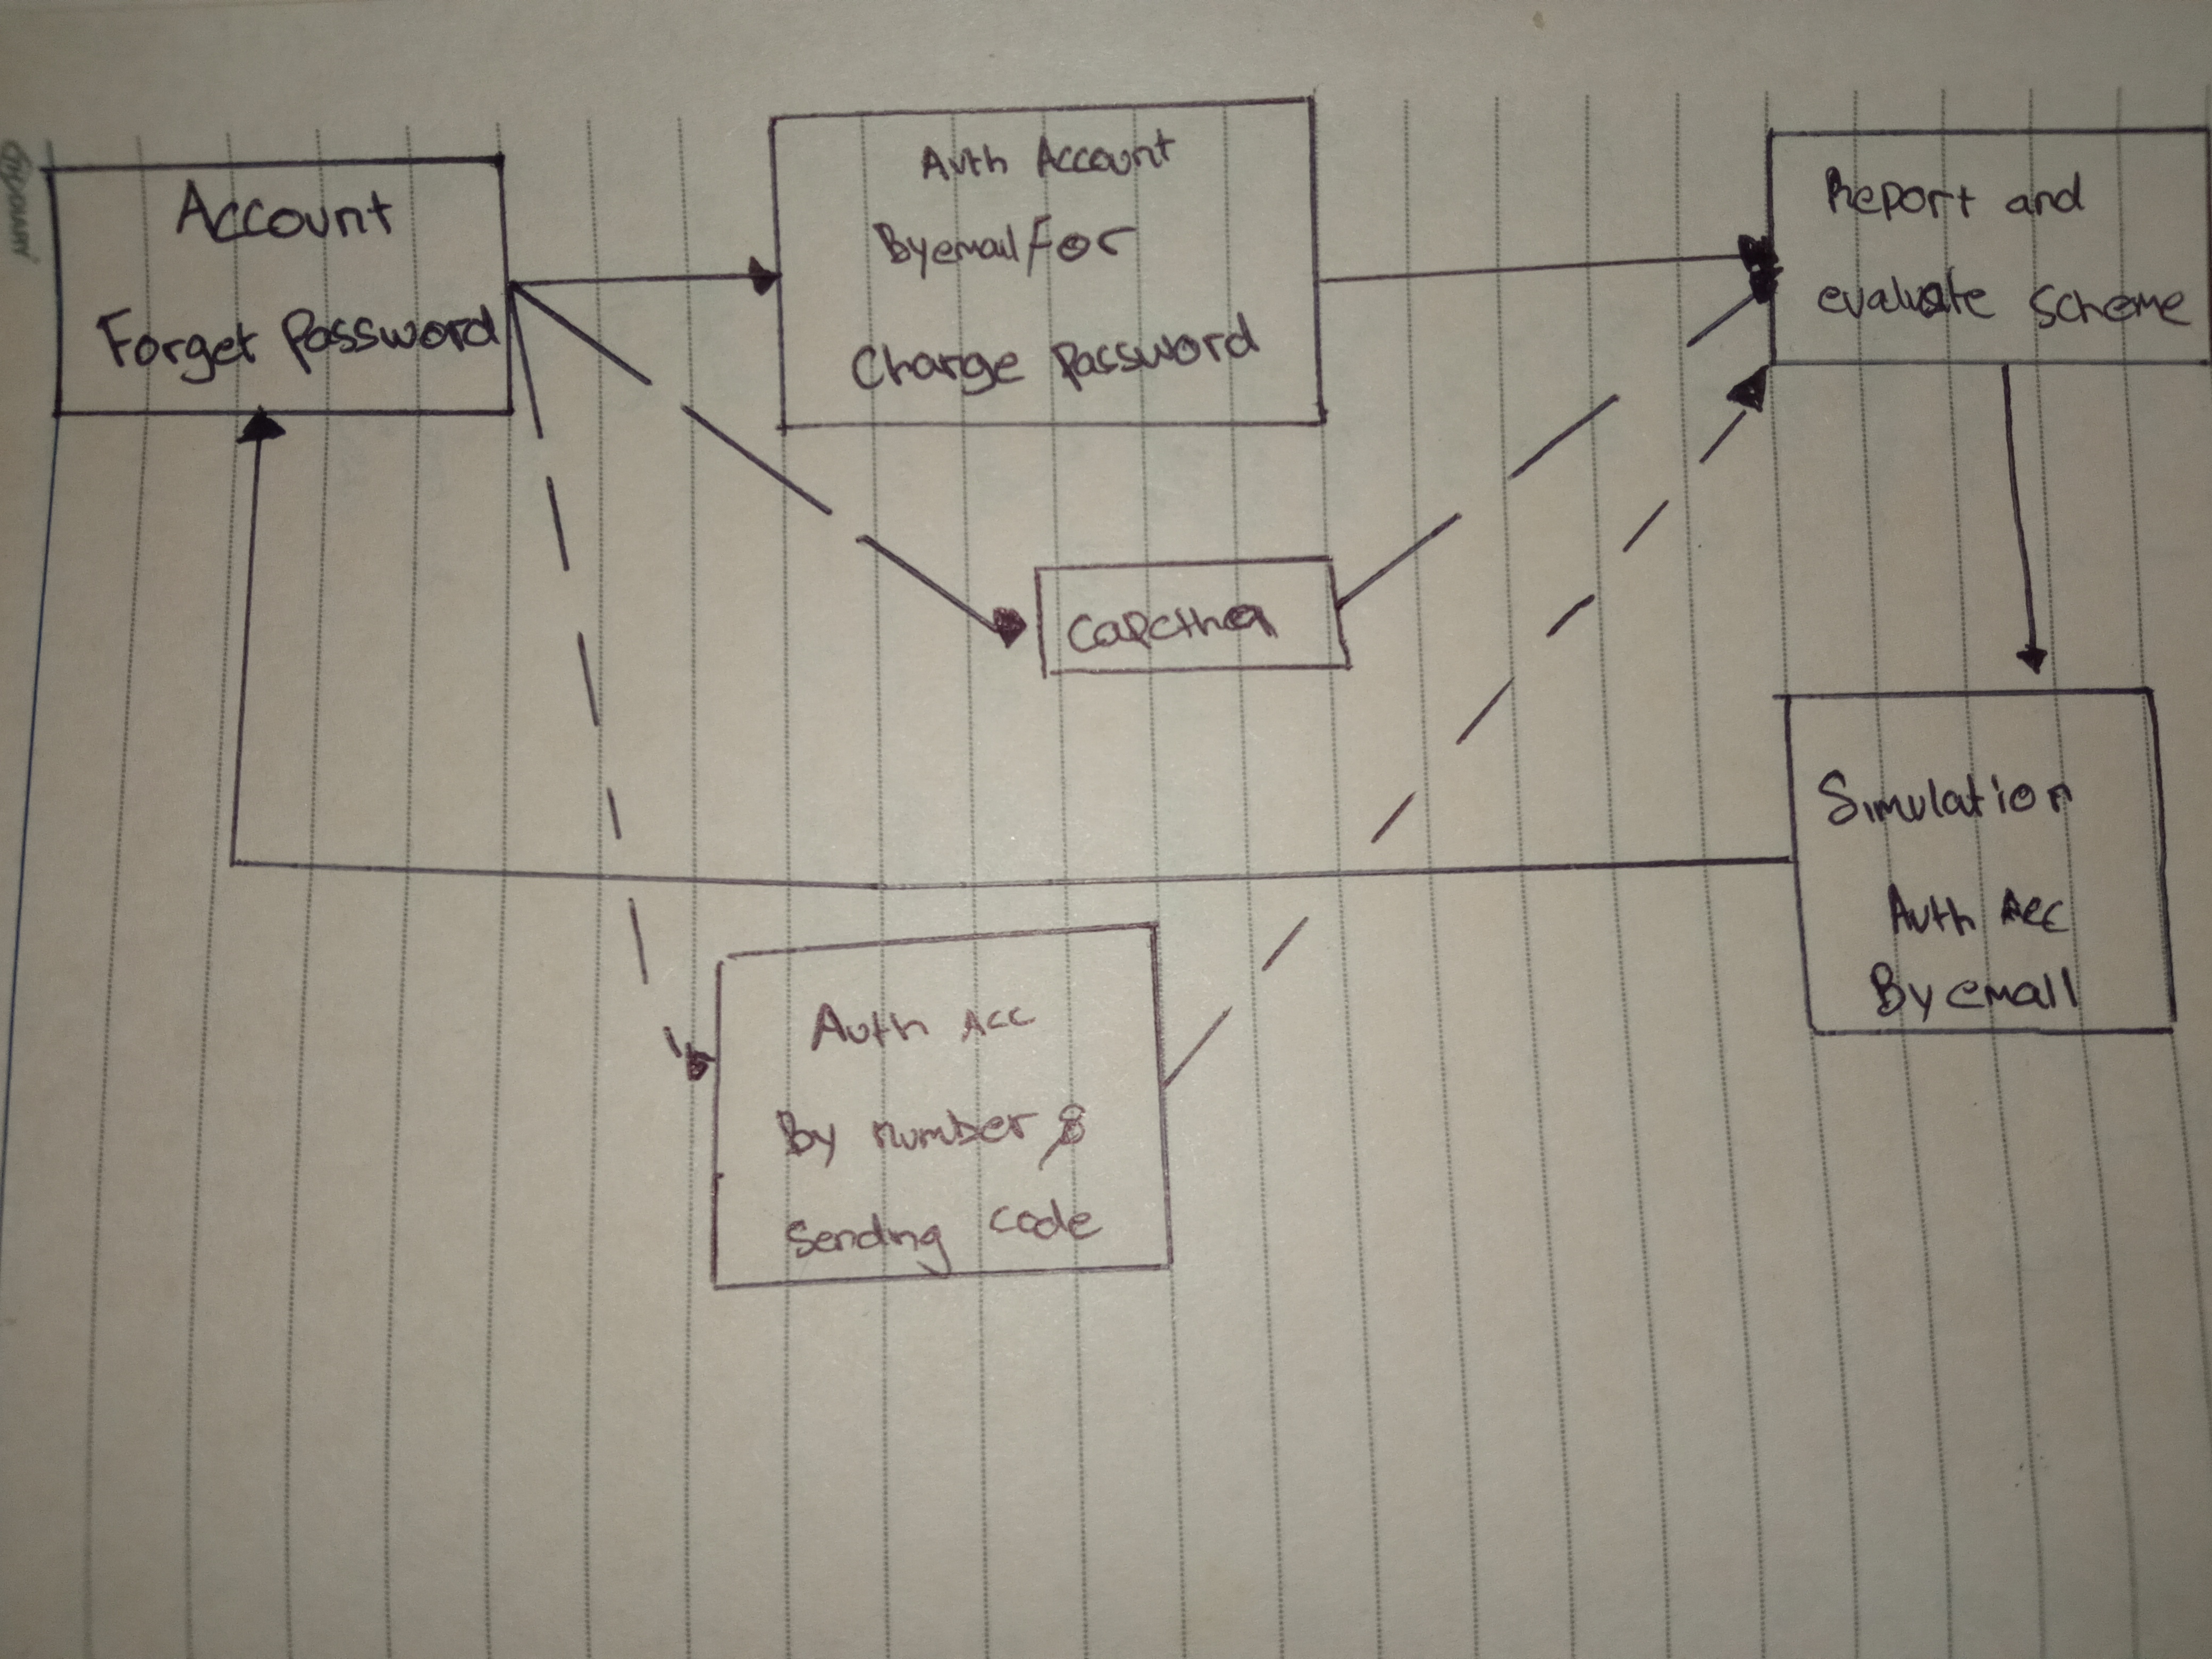 Account
Forget Password
Auth Account
By email For
Charge Password
Report and
evaluate Scheme
Capctha
Simulation
Auth Acc
By email
Auth Acc
By number &
Sending Code